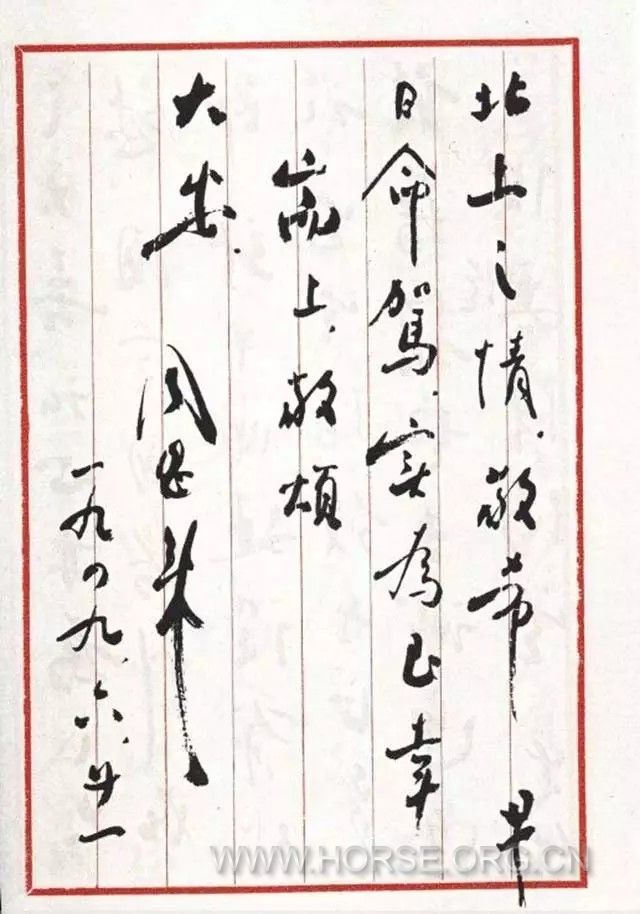 北上之情.敬希 早
日命駕.实為至幸
耑上.敬颂
大安.
周恩来
一九四九.六.廿一
WWW.HORSE.ORG.CN